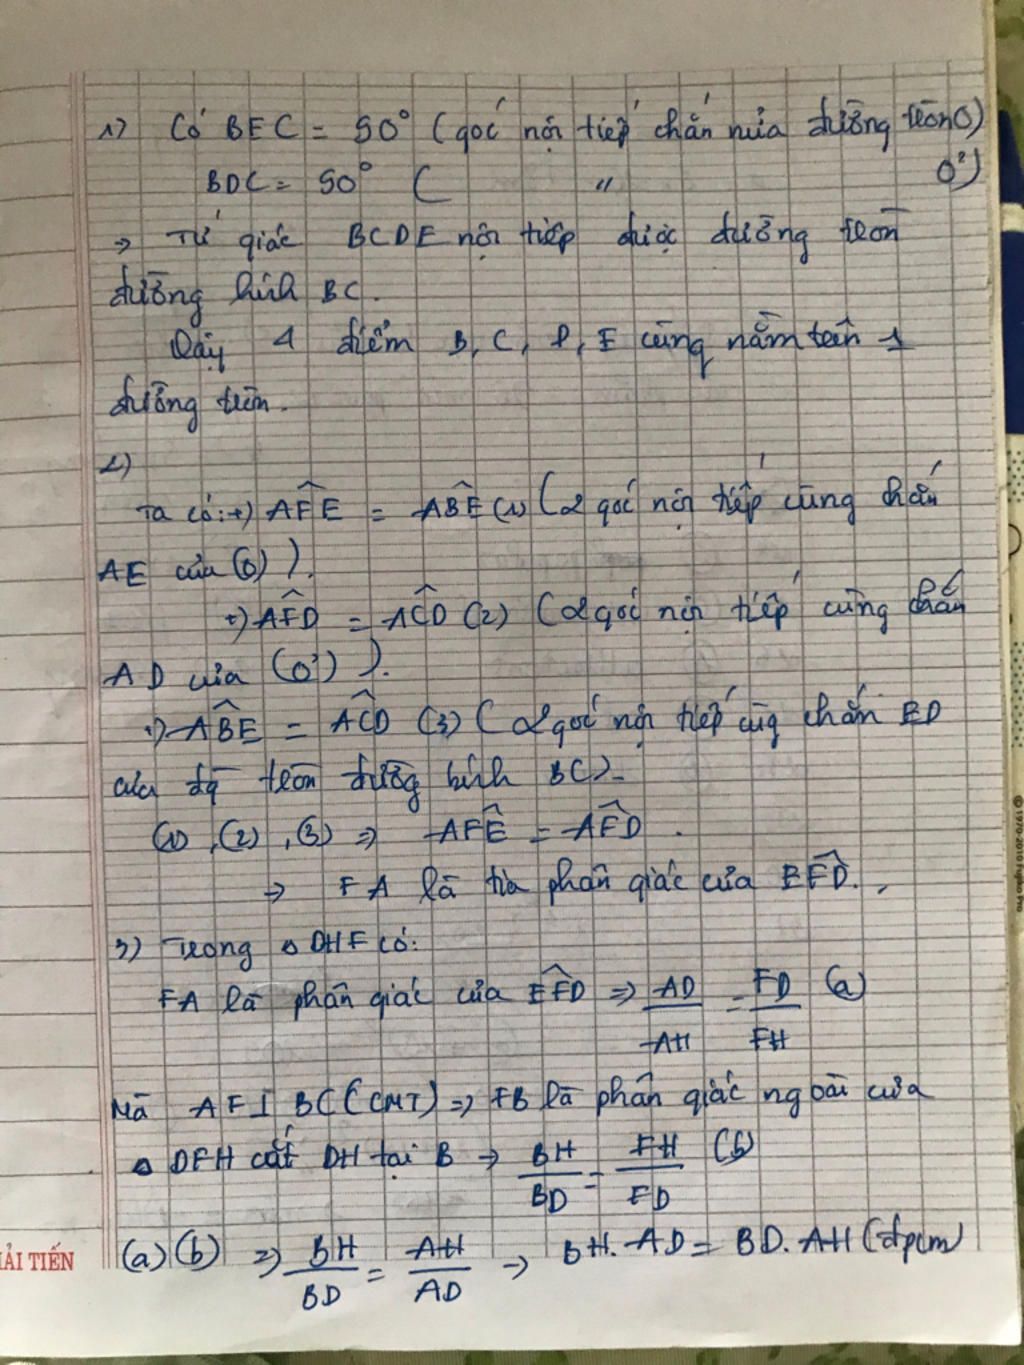 1) Có BEC = 90° (góc nội tiếp chắn nửa đường tròn O)
BDC = 90° ( " O')
⇒ Tứ giác BCDE nội tiếp được đường tròn
đường kính BC.
Vậy 4 điểm B, C, D, E cùng nằm trên 1
đường tròn.
2)
Ta có: +) \widehat{AFE} = \widehat{ABE} (1) (2 góc nội tiếp cùng chắn
AE của (O) ).
+) \widehat{AFD} = \widehat{ACD} (2) (2 góc nội tiếp cùng chắn
AD của (O') ).
+) \widehat{ABE} = \widehat{ACD} (3) (2 góc nội tiếp cùg chắn ED
của đg tròn đườg kính BC).
(1), (2), (3) ⇒ \widehat{AFE} = \widehat{AFD}.
⇒ FA là tia phân giác của \widehat{EFD}.
3) Trong △DHF có:
FA là phân giác của \widehat{EFD} ⇒ \frac{AD}{AH} = \frac{FD}{FH} (a)
Mà AF⊥BC (CMT) ⇒ FB là phân giác ngoài của
△DFH cắt DH tại B → \frac{BH}{BD} = \frac{FH}{FD} (b)
(a)(b) ⇒ \frac{BH}{BD} = \frac{AH}{AD} → BH.AD = BD.AH (đpcm)
ẢI TIẾN
© 1970-2010 Fujiko Pro